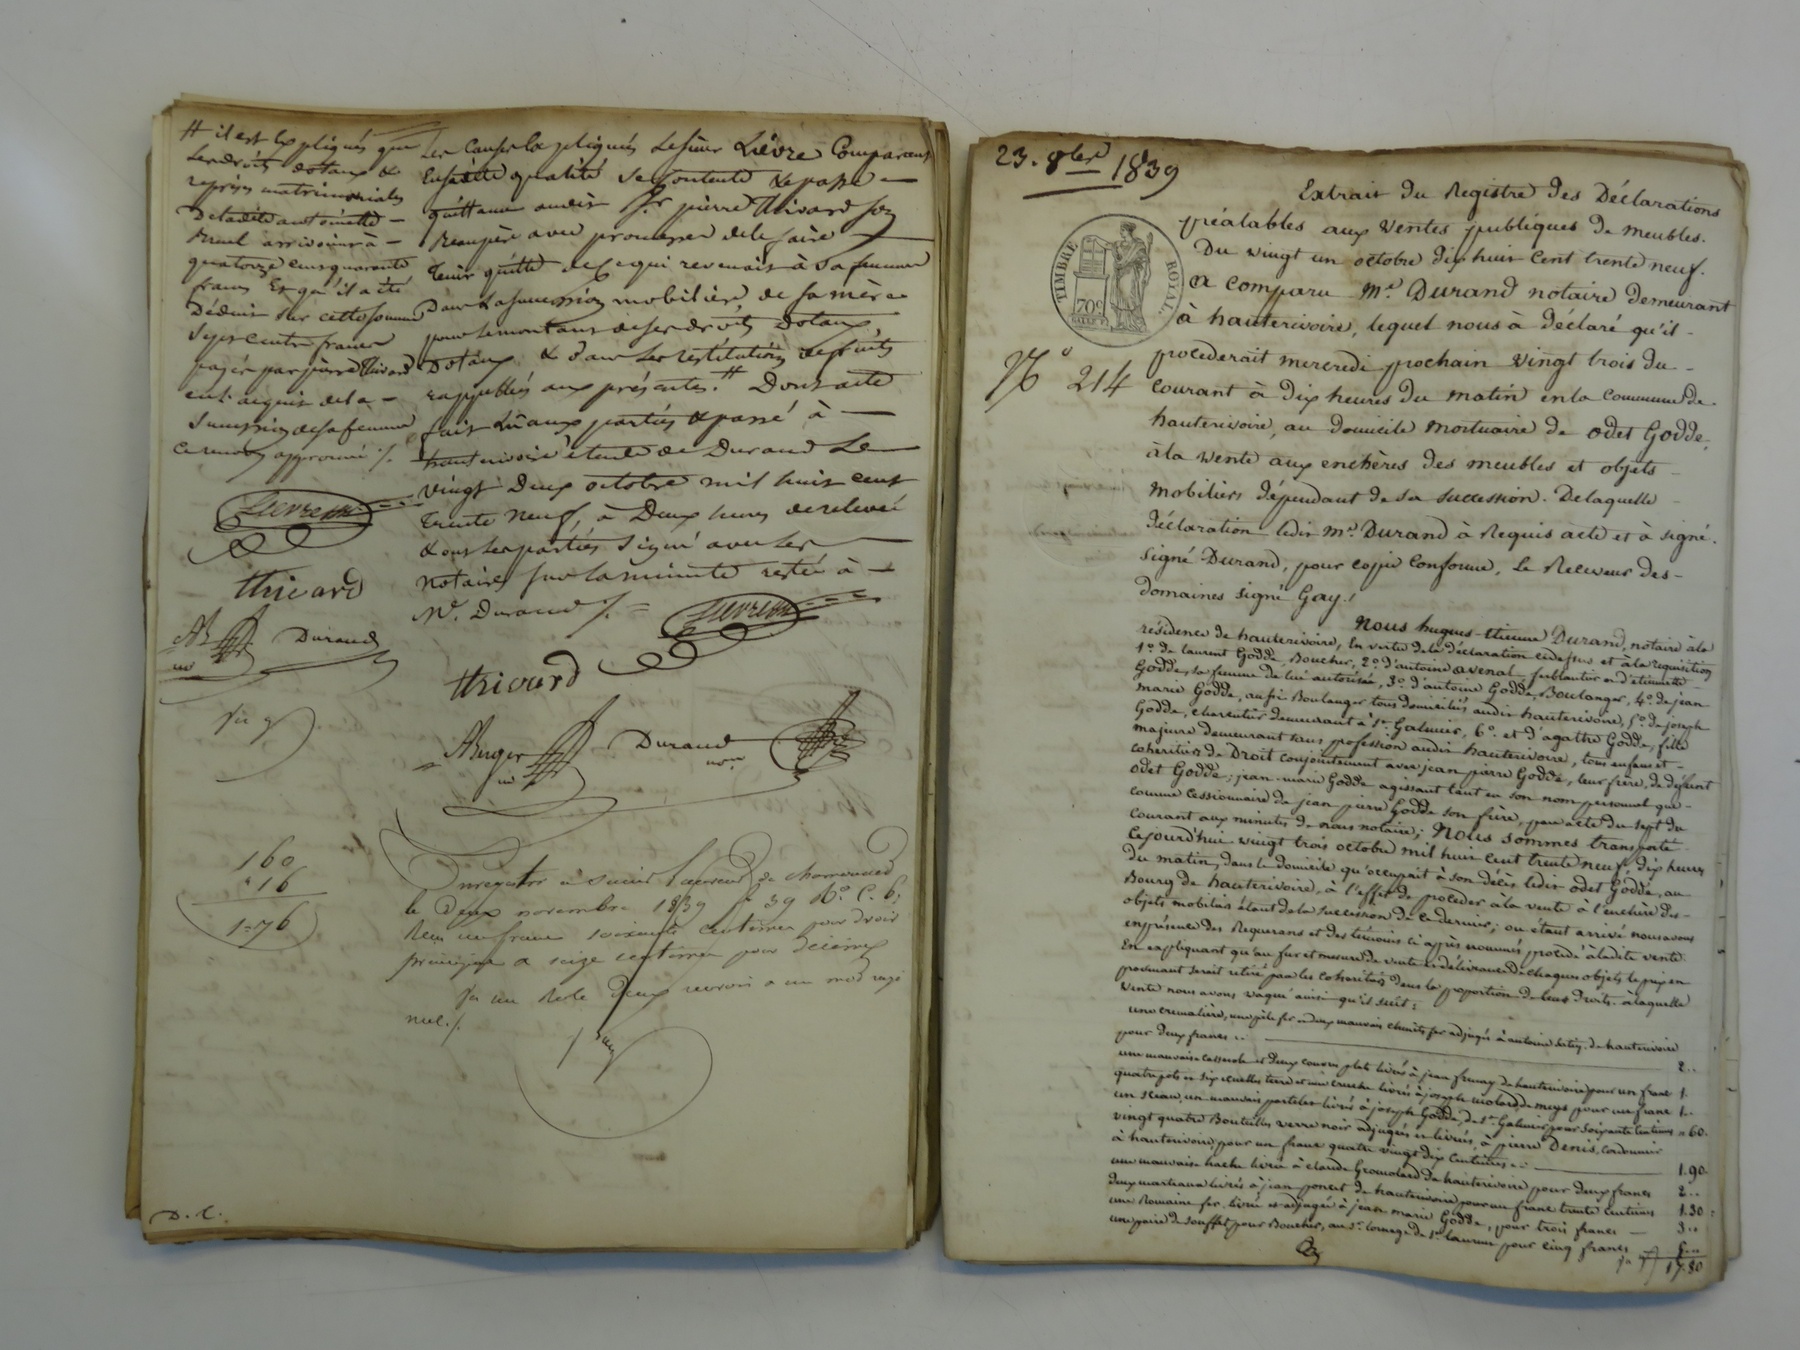 # il est Expliqués que
les droits dotaux &
reprises matrimoniales
De ladite antoinette —
arrivoient à —
quatorze cens quarante
francs Et qu'il a été
Déduit sur cette somme
Sept cents francs
payés par pierre thivard
en l'acquit de la —
Succession de sa femme
Ce renvoy approuvé /.
thivard
Durand
160
" 16
1=76
D. C.
Les Causes Expliqués Le sieur Lièvre Comparant
En sadite qualité se Contente & passe —
quittance audit Sr. pierre thivard son
Beaupère avec promesse de le faire —
tenir quitte de Ce qui revenait à Sa femme
Dans La Succession mobilière de Sa mère
pour le montant de ses droits Dotaux,
Dotaux, & dans Les restitutions de fruits
rappellés aux présentes. # Dont acte
fait Lû aux parties & passé à —
hauterivoire étude de Durand Le —
vingt Deux octobre mil huit cent
trente neuf, à Deux heures de relevée
& ont Les parties Signé avec Les —
notaires sur la minute restée à —
Me. Durand /. =
thivard
Durand
not.re
Enregistré à Saint Laurent de chamousset
le Deux novembre 1839 fo 39 Ro. C. 6,
Reçu un franc soixante centimes pour droit
principal & seize centimes pour décime
nul. /.
23. 8bre 1839
TIMBRE ROYAL.
70c
No 214
Extrait du Registre des Déclarations
préalables aux Ventes publiques de meubles.
Du vingt un octobre dix huit Cent trente neuf.
a comparu Me. Durand notaire demeurant
à hauterivoire, lequel nous à déclaré qu'il -
procéderait mercredi prochain vingt trois du -
courant à dix heures du matin en la commune de
hauterivoire, au domicile mortuaire de odet Godde,
à la vente aux enchères des meubles et objets -
mobiliers dépendant de sa succession. De laquelle -
déclaration ledit Me. Durand à Requis acte et à signé.
Signé Durand, pour copie Conforme, Le Receveur des -
domaines signé Gay. /
Nous hugues-étienne Durand, notaire à la
résidence de hauterivoire, En vertu de la déclaration cidessus et à la requisition
1o. de laurent Godde, Boucher, 2o. d'antoine avenal, ferblantier et d'étiennette -
Godde, sa femme de lui autorisée, 3o. d'antoine Godde, Boulanger, 4o. de jean
marie Godde, aussi Boulanger tous domiciliés audit hauterivoire, 5o. de joseph
Godde, charcutier demeurant à St. Galmier, 6o. et d'agathe Godde, fille
majeure demeurant sans profession audit hauterivoire, tous enfans et -
cohéritiers de Droit conjointement avec jean pierre Godde, leur frère, de défunt
odet Godde; jean-marie Godde agissant tant en son nom personnel que -
comme Cessionnaire de jean pierre Godde son frère, par acte du sept du
courant aux minutes de nous notaire; Nous sommes transporté -
Cejourd'hui vingt trois octobre mil huit cent trente neuf, dix heures
du matin, dans le domicile qu'occupait à son décès ledit odet Godde, au
Bourg de hauterivoire, à l'effet de procéder à la vente à l'enchère des -
objets mobiliers étant de la succession de ce dernier; où étant arrivé nous avons
en présence des Requerans et des témoins ci après nommés procédé à ladite vente.
En expliquant qu'au fur et mesure de vente et délivrance de chaques objets le prix en
provenant serait retiré par les cohéritiers dans la proportion de leurs droits. à laquelle
vente nous avons vaqué ainsi qu'il suit;
une cremalière, une pèle fer et deux mauvais chenets fer adjugés à antoine de hauterivoire
pour deux francs .. — 2 ..
une mauvaise casserole et deux couverts plats livrés à jean de hauterivoire pour un franc 1.
quatre pots et six écuelles terre et une cruche livrés à joseph molard de meys pour un franc 1..
un Seau, un mauvais livrés à joseph Godde, de St. Galmier pour soixante Centimes " 60.
vingt quatre Bouteilles verre noir adjugés et livrés à pierre Denis, cordonnier
à hauterivoire pour un franc quatre vingt dix Centimes .. — 1.90
une mauvaise hache livrée à claude Gromolard de hauterivoire pour deux francs 2 ..
deux marteaux livrés à jean poncet de hauterivoire pour un franc trente Centimes 1.30
une Romaine fer livrée et adjugée à jean marie Godde, pour trois francs — 3 ..
une paire de soufflet pour Boucher, au Sr. de St. laurent pour cinq francs 5 ..
17.80